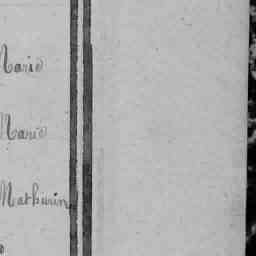 Marie
Marie
Mathurin